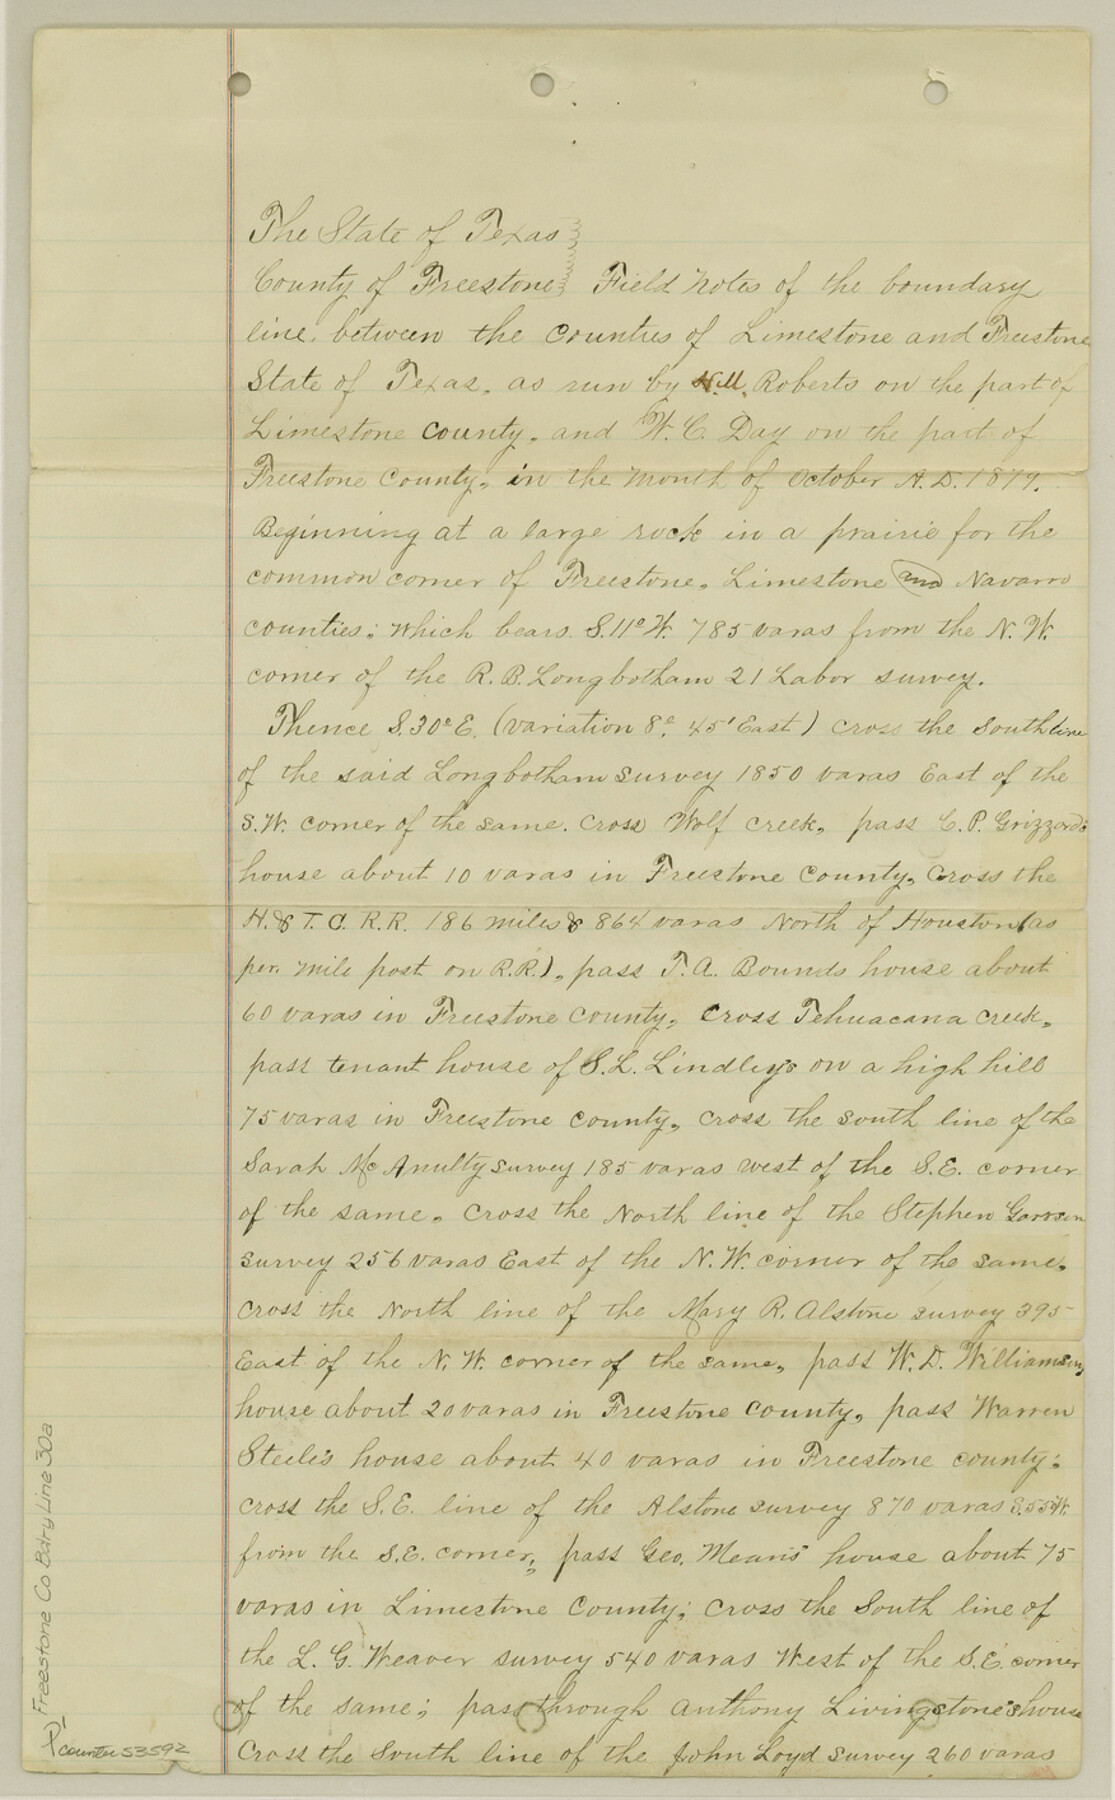 The State of Texas
County of Freestone Field Notes of the boundary
line. between the counties of Limestone and Freestone
State of Texas. as run by Roberts on the part of
Limestone County. and W. C. Day on the part of
Freestone County, in the month of October A.D. 1879.
Beginning at a large rock in a prairie for the
common corner of Freestone, Limestone and Navarro
counties; which bears S. 11° W. 785 varas from the N. W.
corner of the R. B. Longbotham 21 Labor survey.
Thence S. 30° E. (variation 8° 45' East) cross the South line
of the said Longbotham survey 1850 varas East of the
S.W. corner of the same. Cross Wolf creek, pass C. P. Grizzard's
house about 10 varas in Freestone County, Cross the
H. & T. C. R.R. 186 miles & 864 varas North of Houston (as
per. mile post on R.R.), pass T. A. Bounds house about
60 varas in Freestone County, Cross Tehuacana Creek,
pass tenant house of S. L. Lindley's on a high hill
75 varas in Freestone County, cross the south line of the
Sarah McAnulty survey 185 varas west of the S.E. corner
of the same. Cross the North line of the Stephen
survey 256 varas East of the N. W. corner of the same.
Cross the North line of the Mary R. Alstone survey 395
East of the N. W. corner of the same, pass W. D. Williamson,
house about 20 varas in Freestone County, pass Warren
Steele's house about 40 varas in Freestone county;
cross the S.E. line of the Alstone survey 870 varas S.55°W.
from the S.E. corner; pass Geo. Means' house about 75
varas in Limestone County; cross the South line of
the L. G. Weaver survey 540 varas West of the S.E. corner
of the same; pass through Anthony Livingstone's house
Cross the South line of the John Loyd survey 260 varas
Freestone Co Bdry Line 30a
counter 53592